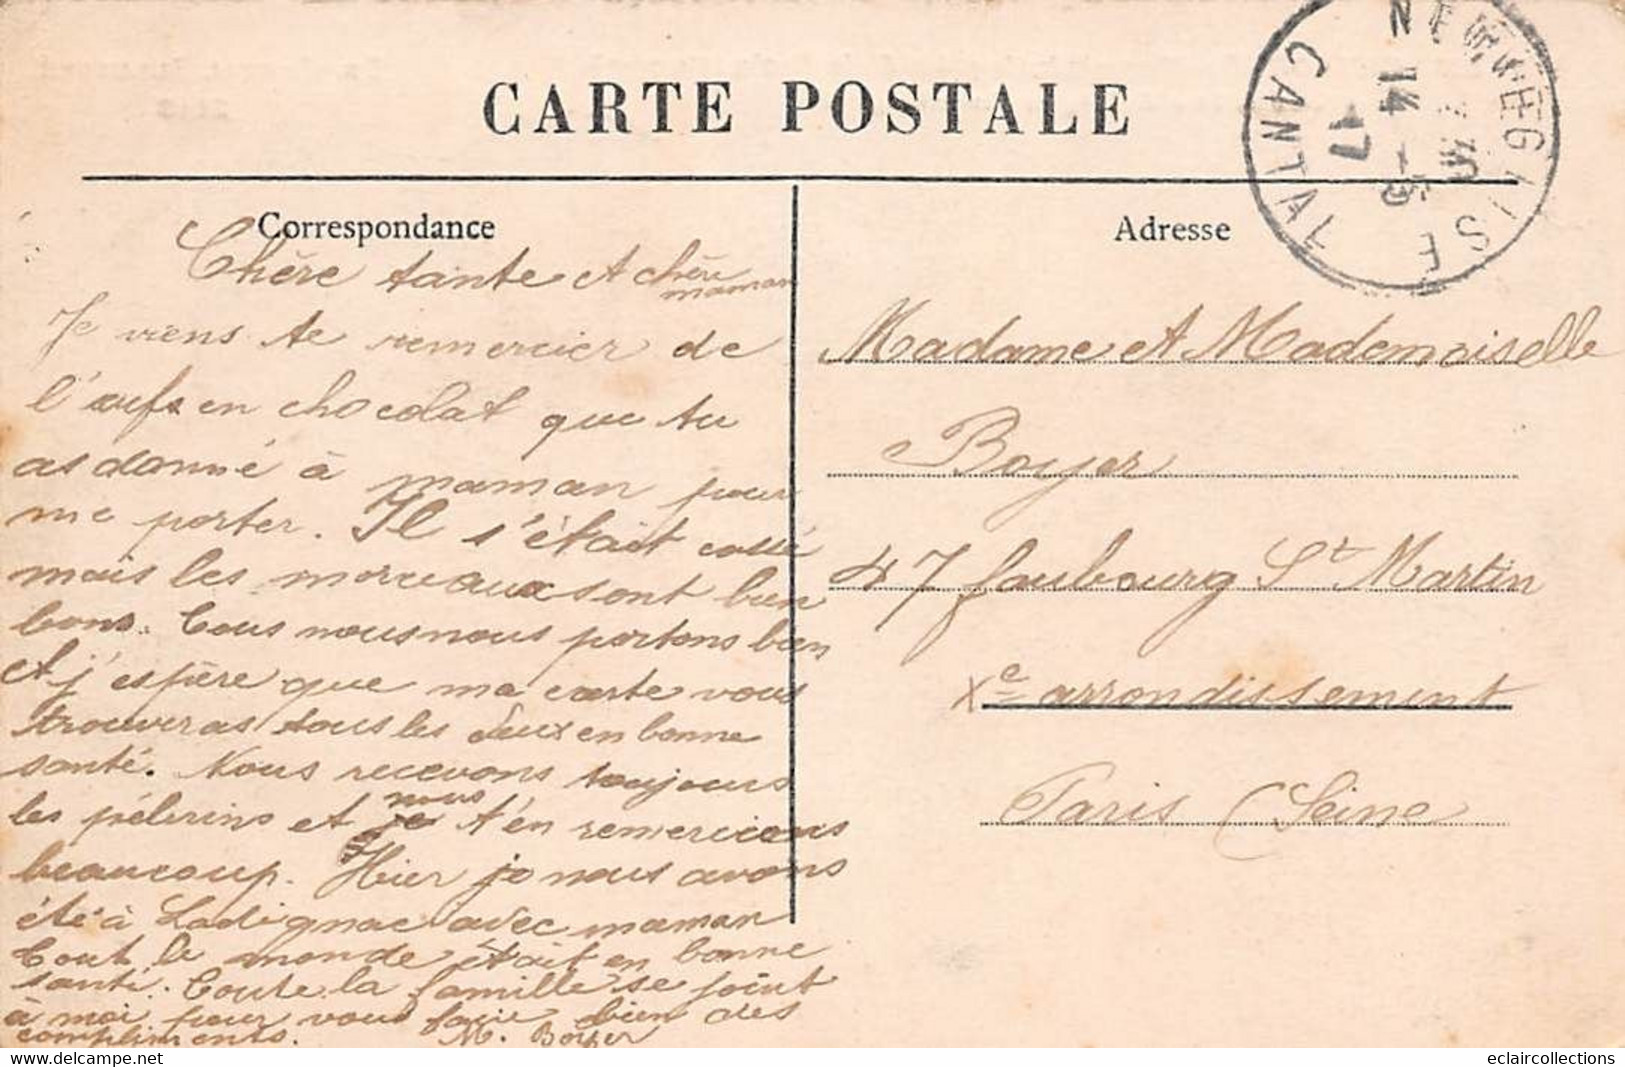 CARTE POSTALE
NEUVÉGLISE
CANTAL
14 - 5
17
Correspondance
Chère tante et chère
maman
Je viens te remercier de
l'œufs en chocolat que tu
as donné à maman pour
me porter. Il s'était cassé
mais les morceaux sont bien
bons. Tous nous nous portons bien
et j'espère que ma carte vous
trouveras tous les deux en bonne
santé. Nous recevons toujours
les pélerins et nous t'en remercions
beaucoup. Hier je nous avons
été à Ladignac avec maman
Tout le monde était en bonne
santé. Toute la famille se joint
à moi pour vous faire bien des
compliments. M. Boyer
Adresse
Madame et Mademoiselle
Boyer
47 faubourg St Martin
Xe arrondissement
Paris (Seine
www.delcampe.net
eclaircollections